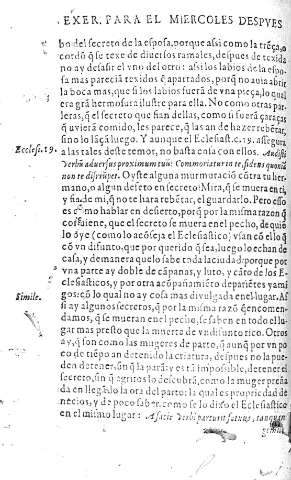 EXER. PARA EL MIERCOLES DESPVES
bo del secreto de la esposa, porque assi como la trẽça, o
cordõ q̃ se texe de diuersos ramales, despues de texida
no ay desasir el vno del otro: assi los labios de la espo-
sa mas pareciã texidos q̃ apartados, porq̃ no auia abrir
la boca mas, que si los labios fuerã de vna pieça, lo qual
era grã hermosura ilustre para ella. No como otras par-
leras, q̃ el secreto que fian dellas, como si fuera çaraças
q̃ vuierã comido, les parece, q̃ las an de hazer rebẽtar,
sino lo lãçã luego. Y aunque el Ecclesiastic. 19. assegura
Ecclesi. 19.
a las tales deste temor, no basta cõsa con ellos. Audisti
verbũ aduersus proximum tuũ: Commoriatur in te, fidens quoniã
non te disrũpet. Oyste alguna murmuraciõ cõtra tu her-
mano, o algun defeto en secreto: Mira, q̃ se muera en ti,
y fia de mi, q̃ no te hara rebẽtar, el guardarlo. Pero esso
es como hablar en desierto, porq̃ por la misma razon q̃
cõuiene, que el secreto se muera en el pecho, de quiẽ
lo oye (como lo acõseja el Ecclesiastico) vsan cõ ello q̃
cõ vn difunto, que por querido q̃ sea, luego lo echan de
casa, y demanera quelo sabe toda la ciudad: porque por
vna parte ay doble de cãpanas, y luto, y cãto de los Ec-
clesiasticos, y por otra acõpañamiẽto de pariẽtes y ami
gos: cõ lo qual no ay cosa mas diuulgada en el lugar. Assi
Simile.
si ay algunos secretos, q̃ por la misma razõ q̃ encomen-
damos, q̃ se mueran en el pecho, se saben en todo el lu-
gar mas presto que la muerte de vn difunto rico. Otros
ay, q̃ son como las mugeres de parto, q̃ aunq̃ por vn po
co de tiẽpo an detenido la criatura, despues no la pue-
den detener, sin q̃ la parã: y es tã impossible, detener el
secreto, sin q̃ a gritos lo descubrã, como la muger preña
da en llegãdo la ora del parto: la qual es propriedad de
necios, y de poco saber, como se lo dixo el Ecclesiastico
en el mismo lugar: A facie verbi parturit fatuus, tanquam
gemi